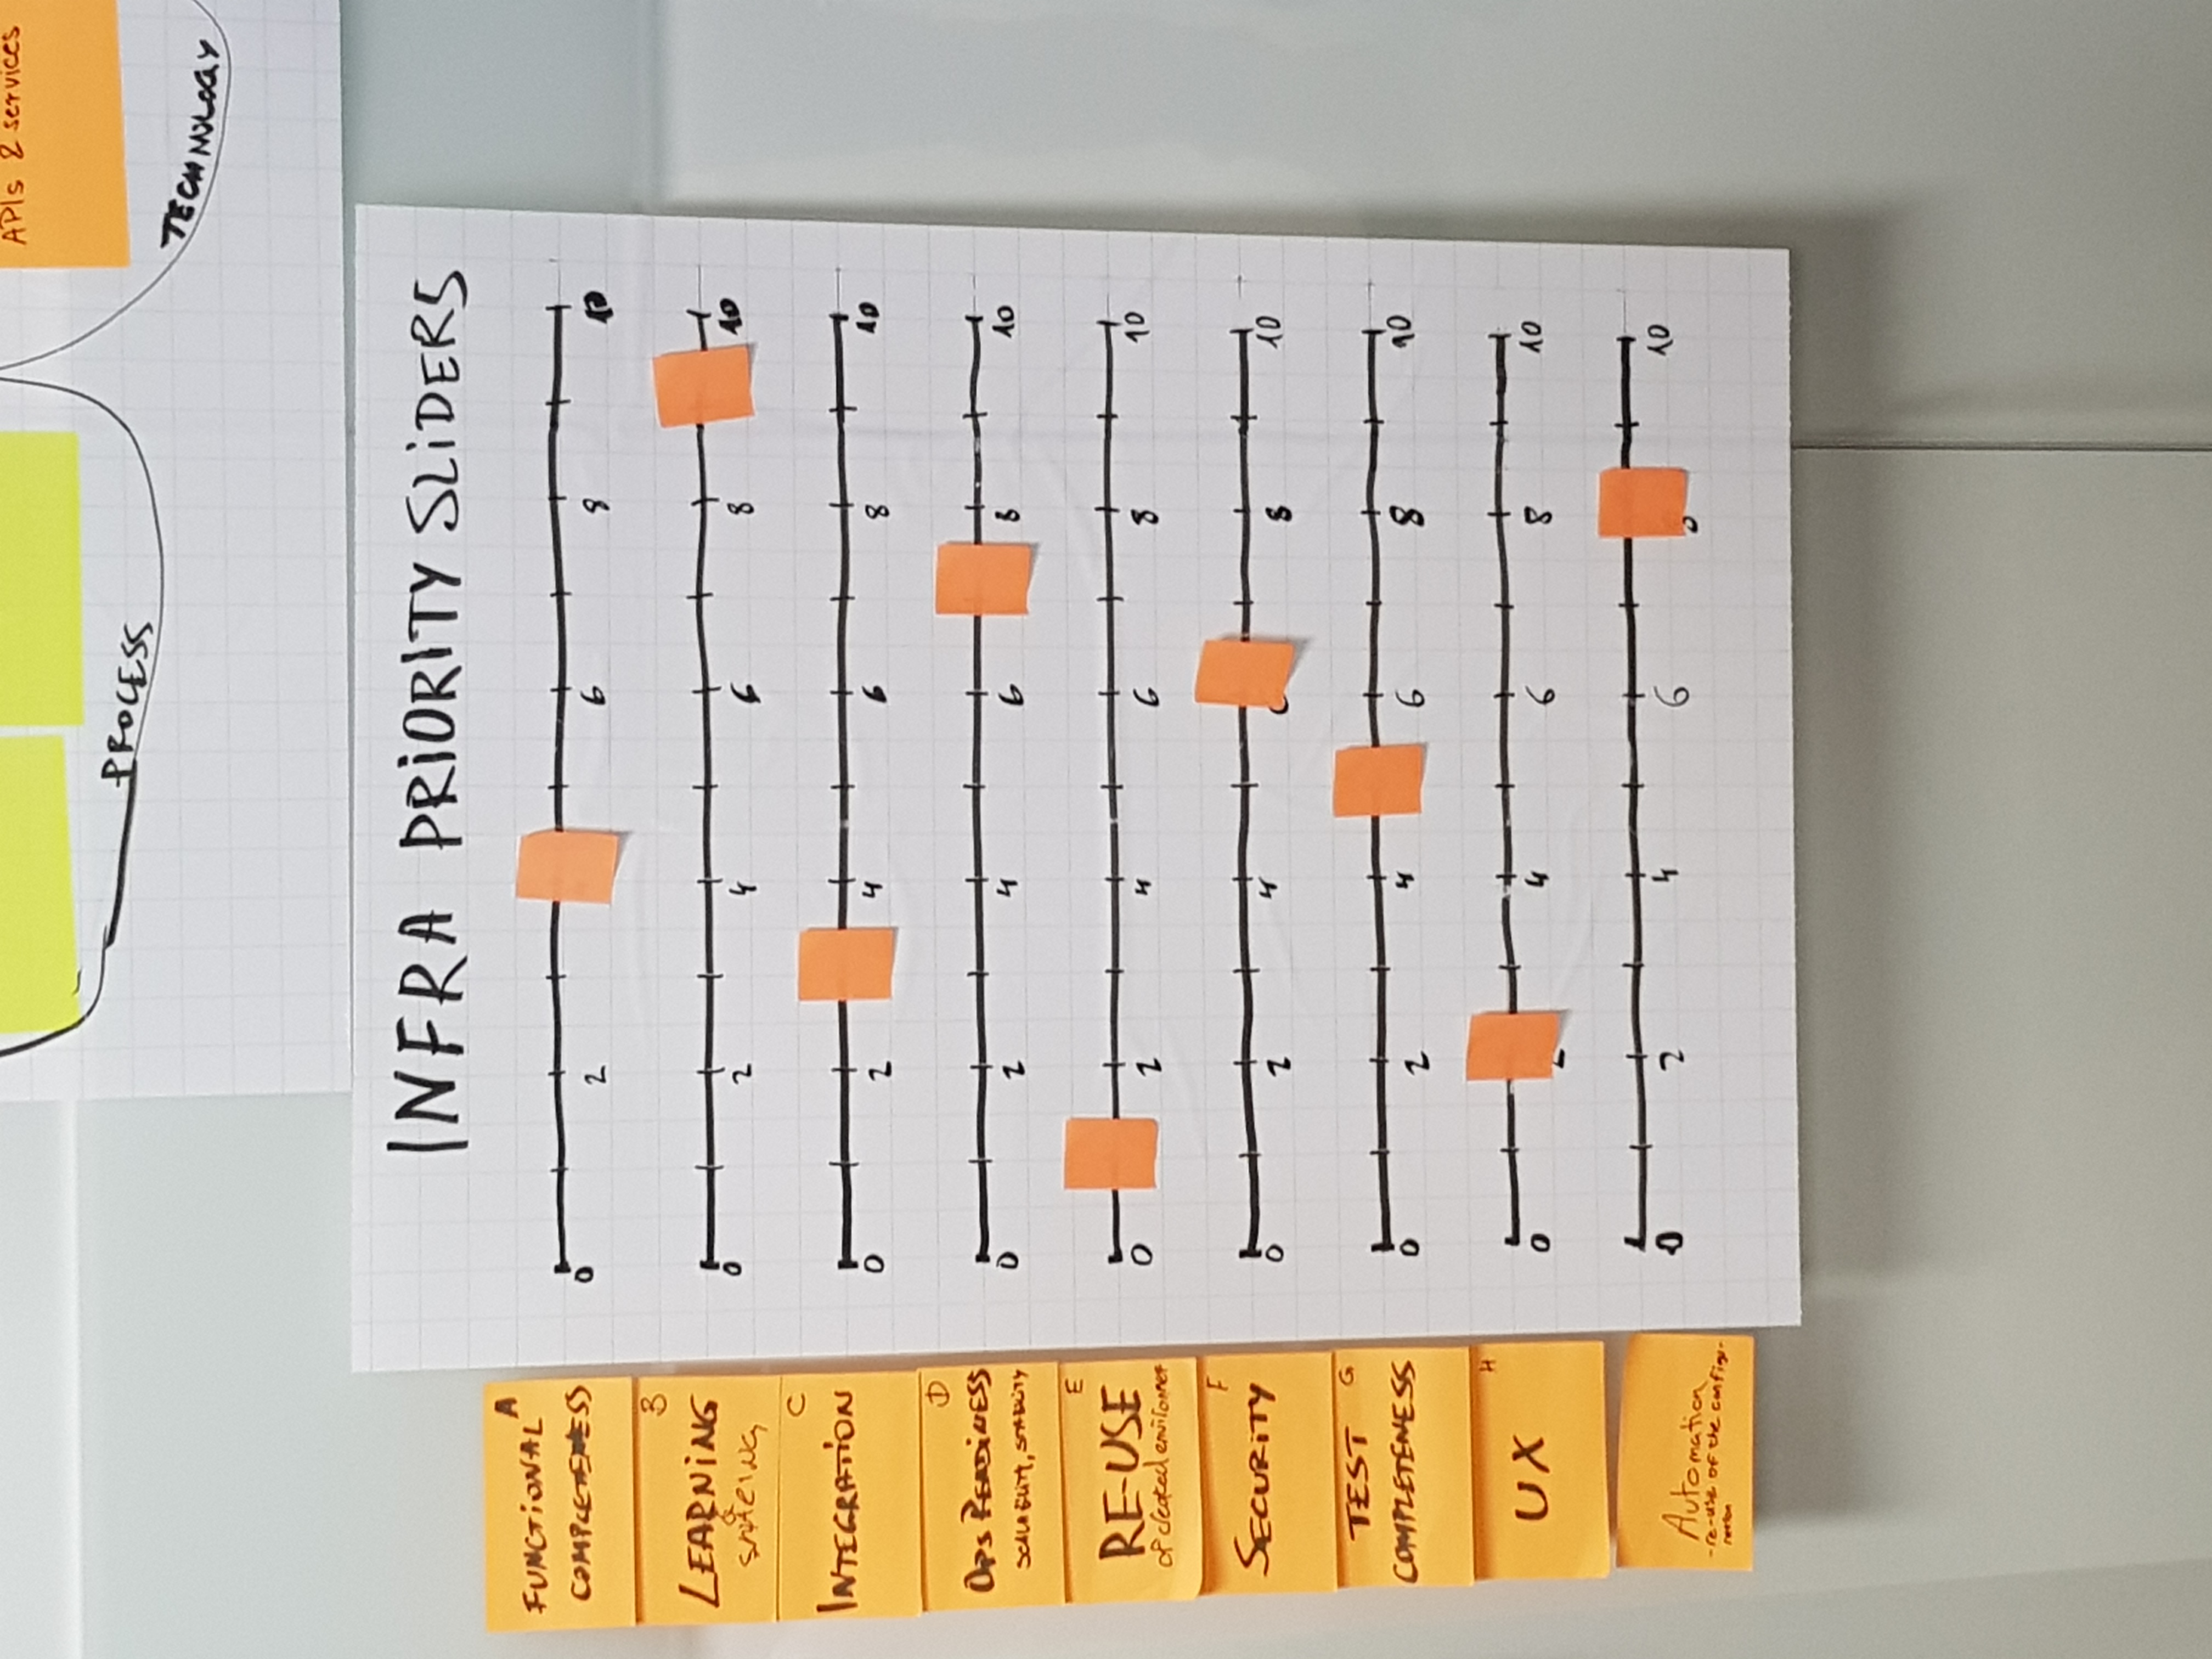 APIs & services
PROCESS
TECHNOLOGY
INFRA PRIORITY SLIDERS
A
FUNCTIONAL
COMPLETENESS
0 2 6 8 10
B
LEARNING
&
SHARING
0 2 4 6 8 10
C
INTEGRATION
0 2 4 6 8 10
D
OPS READINESS
SCALABILITY, STABILITY
0 2 4 6 8 10
E
RE-USE
of created environmet
0 2 4 6 8 10
F
SECURITY
0 2 4 8 10
G
TEST
COMPLETENESS
0 2 4 6 8 10
H
UX
0 4 6 8 10
Automation
-re-use of the configu-
ration
0 2 4 6 10